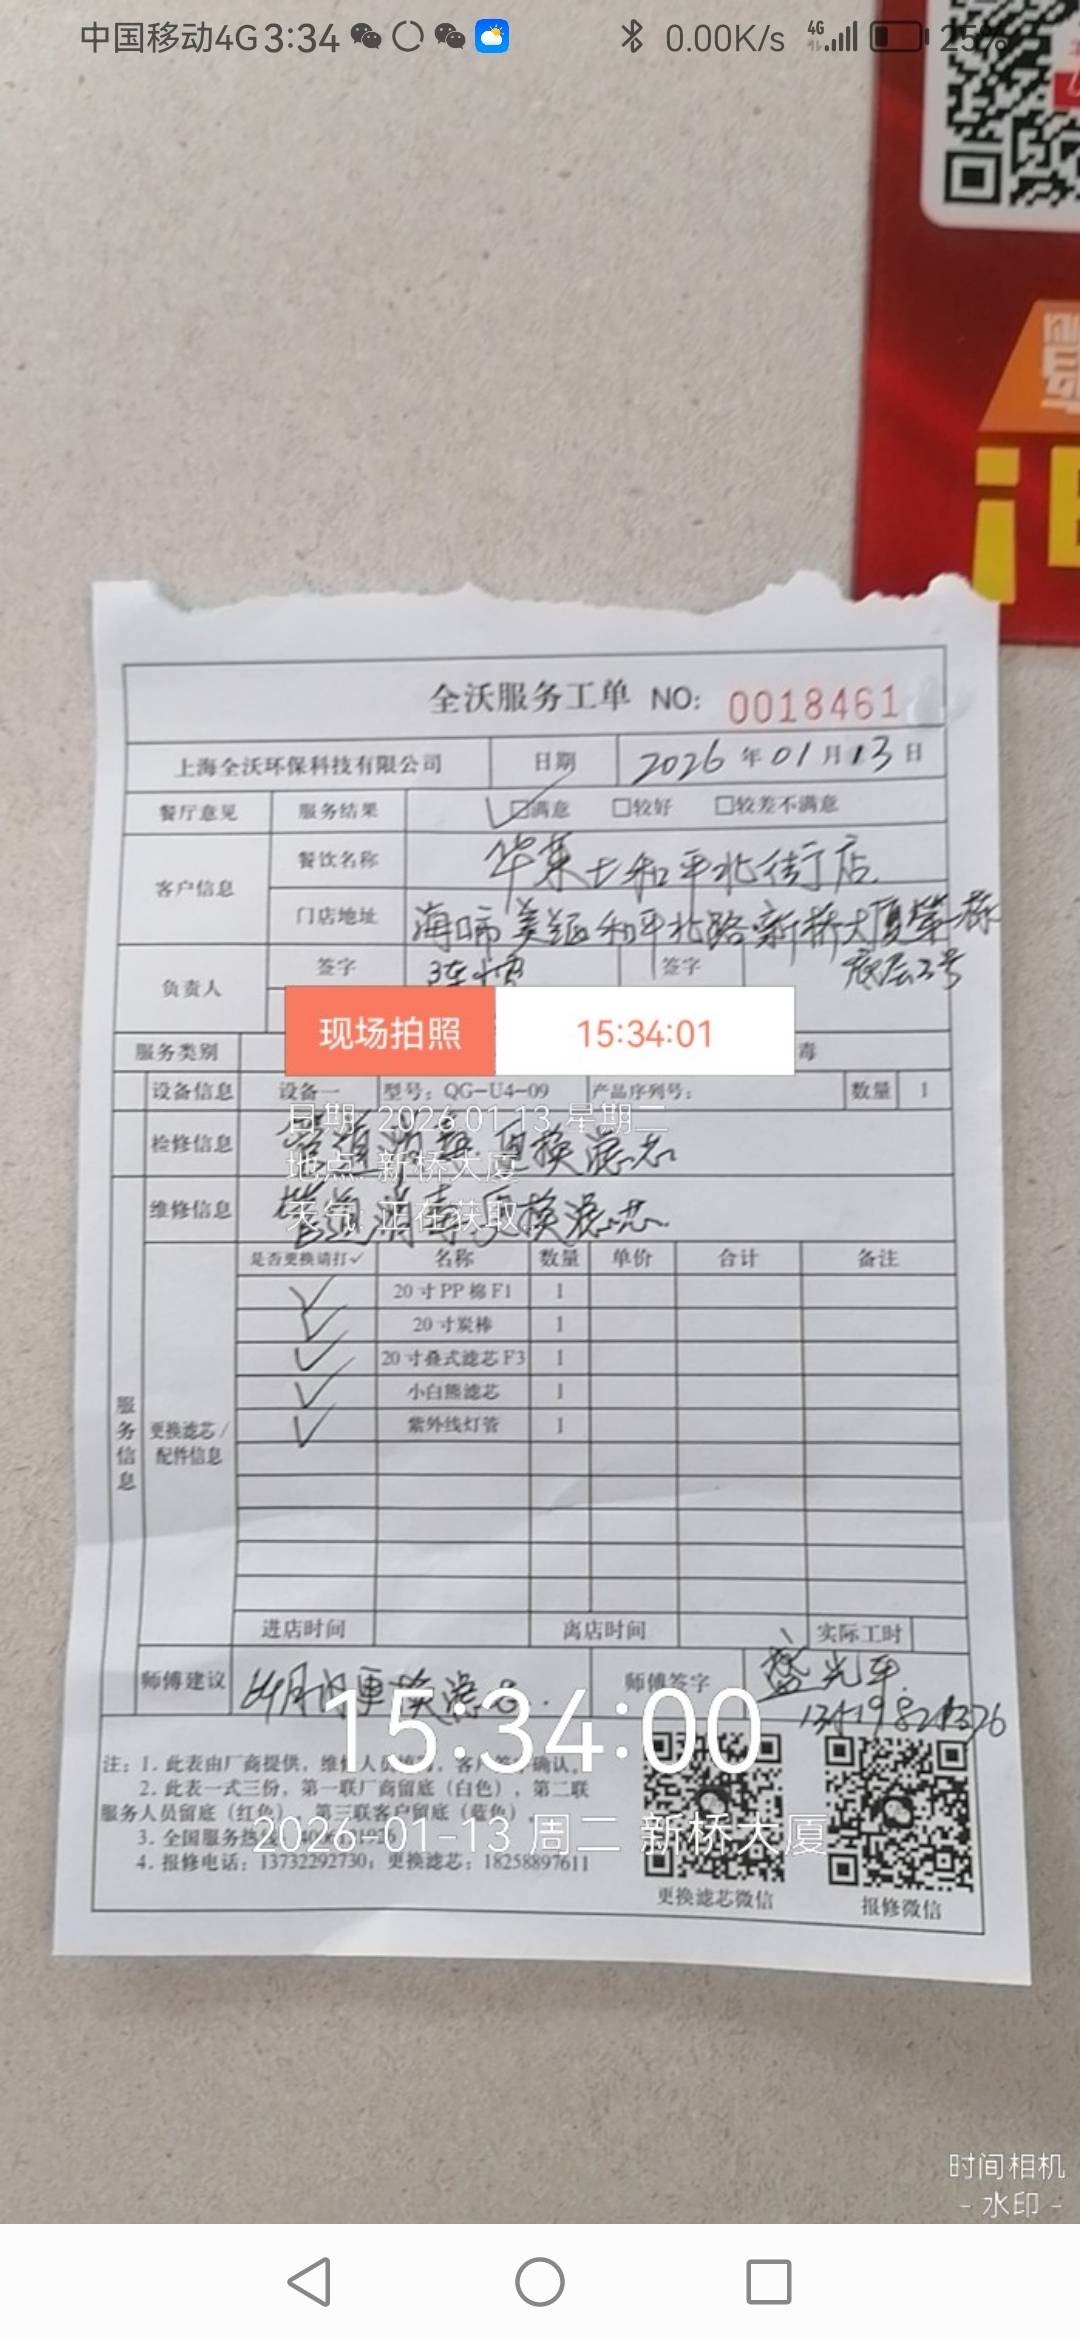 中国移动4G 3:34 0.00K/s 4G 25%
全沃服务工单 NO: 0018461
上海全沃环保科技有限公司 日期 2026年01月13日
餐厅意见 服务结果 ☑满意 □较好 □较差不满意
客户信息 餐饮名称 华莱士和平北街店
门店地址 海口市美兰区和平北路新桥大厦第一栋
底层3号
负责人 签字 签字
现场拍照 15:34:01
服务类别 毒
设备信息 设备一 型号：QG-U4-09 产品序列号： 数量 1
日期: 2026 01 13 星期二
检修信息 管道消毒.更换滤芯
地点: 新桥大厦
维修信息 管道消毒.更换滤芯.
天气: 正在获取
是否更换请打✓ 名称 数量 单价 合计 备注
✓ 20寸PP棉F1 1
✓ 20寸炭棒 1
✓ 20寸叠式滤芯F3 1
✓ 小白熊滤芯 1
✓ 紫外线灯管 1
服务信息 更换滤芯/配件信息
进店时间 离店时间 实际工时
师傅建议 更换滤芯. 师傅签字
15:34:00
注：1. 此表由厂商提供，维修人员 确认。
2. 此表一式三份，第一联厂商留底（白色），第二联
服务人员留底（红色），第三联客户留底（蓝色）
2026-01-13 周二 新桥大厦
3. 全国服务热线
4. 报修电话：13732292730；更换滤芯：18258897611
更换滤芯微信 报修微信
时间相机
- 水印 -